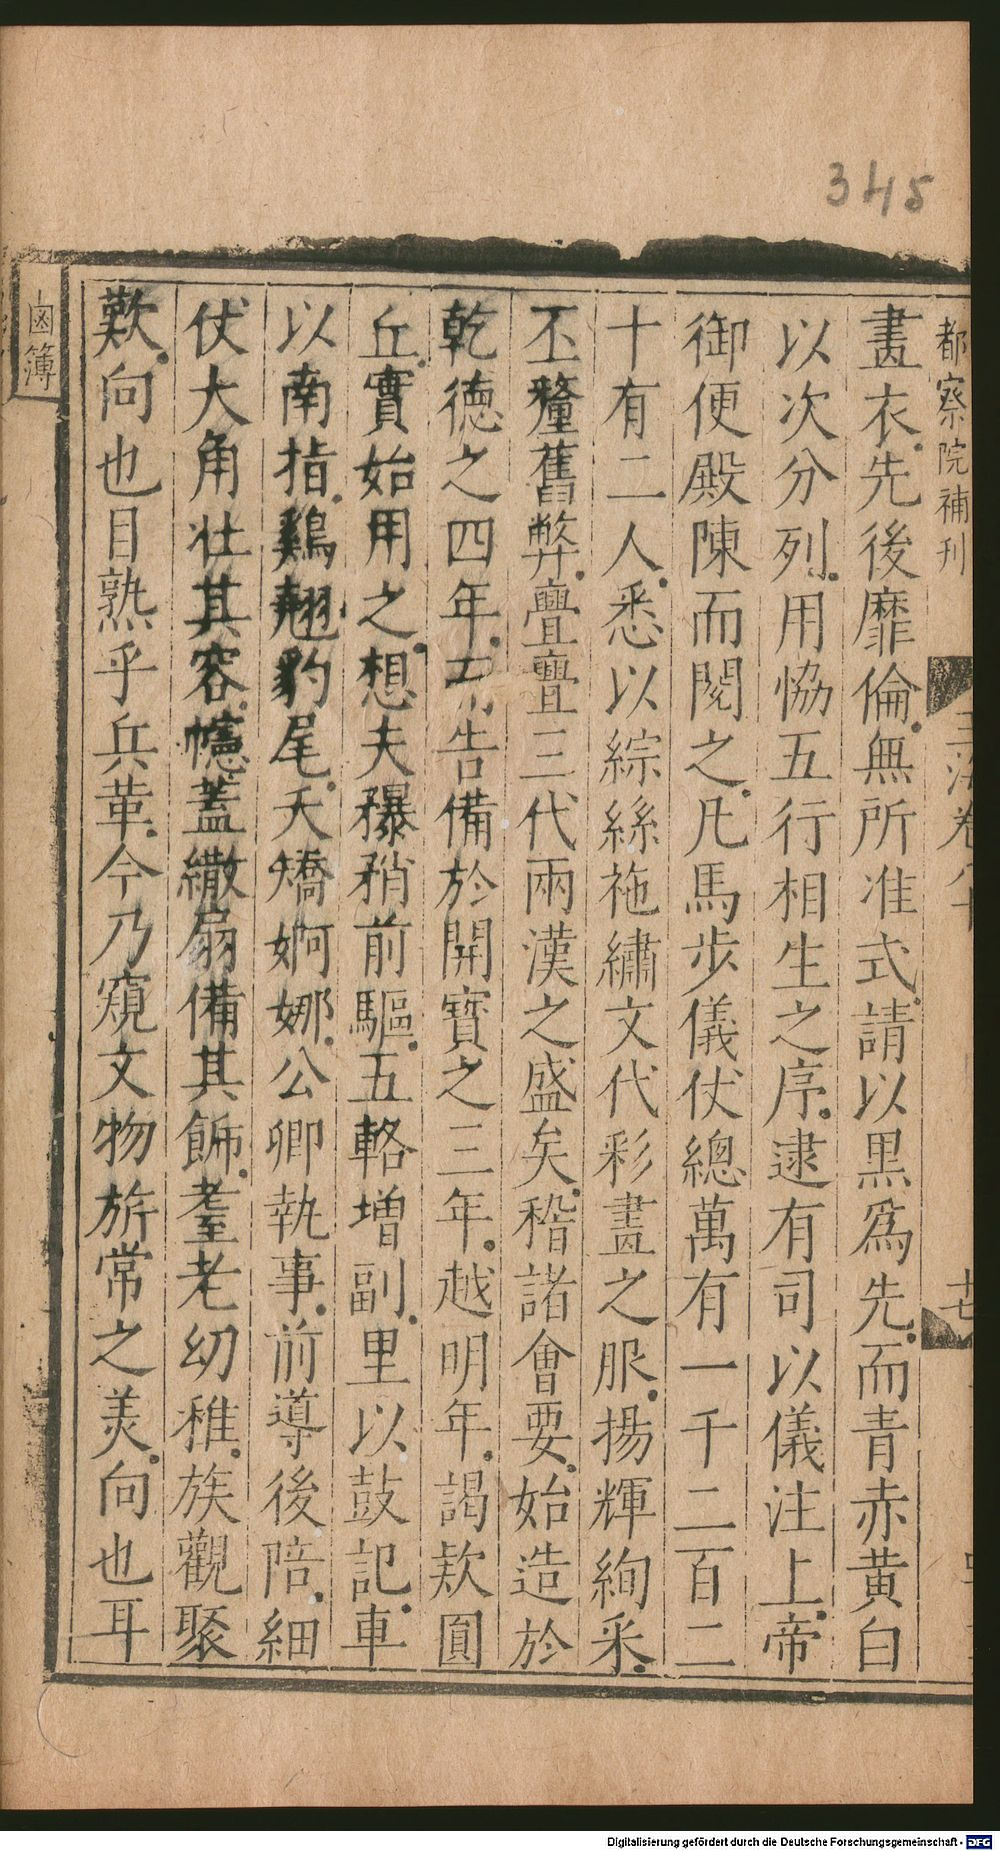 345
都察院補刊
玉海卷八十
十七
畫衣先後靡倫無所准式請以黑爲先而青赤黄白
以次分列用恊五行相生之序逮有司以儀注上帝
御便殿陳而閱之凡馬步儀仗總萬有一千二百二
十有二人悉以綜絲䄂繡文代彩畫之服揚輝絢釆
丕釐舊弊亹亹三代兩漢之盛矣稽諸會要始造於
乾德之四年告備於開寳之三年越明年謁欵圓
丘實始用之想夫𥎆矟前驅五輅增副里以鼓記車
以南指鷄翹豹尾夭矯婀娜公卿執事前導後陪細
仗大角壮其容幰蓋繖扇備其飾耋老幼稚族觀聚
歎向也目熟乎兵革今乃窺文物旂常之美向也耳
鹵簿
Digitalisierung gefördert durch die Deutsche Forschungsgemeinschaft - DFG